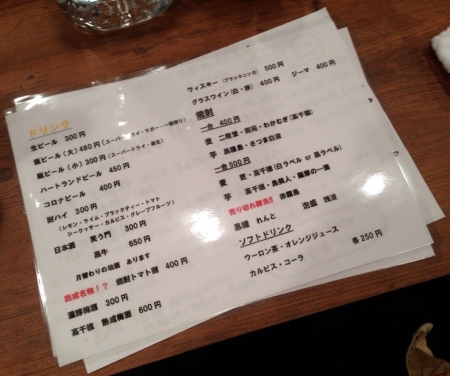 ドリンク
生ビール 300円
瓶ビール(大)480円(スーパードライ・ラガー・一番搾り)
瓶ビール(小)300円(スーパードライ・黒生)
ハートランドビール 450円
コロナビール 400円
酎ハイ 300円
(レモン・ライム・ブラックティー・トマト
シークヮサー・カルピス・グレープフルーツ)
日本酒 笑う門 300円
黒牛 650円
月替わりの地酒 あります
西成名物!? 焼酎トマト割 400円
濃厚梅酒 300円
高千穂 熟成梅酒 600円
ウィスキー(ブラックニッカ) 500円
グラスワイン(白・赤) 400円 ジーマ 400円
焼酎
一合 400円
麦 二階堂・田苑・わかむぎ(高千穂)
芋 黒霧島・さつま白波
一合 500円
麦 匠・高千穂(白ラベル or 黒ラベル)
芋 高千穂・島美人・薩摩の一滴
売り切れ御免!! 赤霧島
黒糖 れんと 泡盛 残波
ソフトドリンク
ウーロン茶・オレンジジュース
カルピス・コーラ 各250円